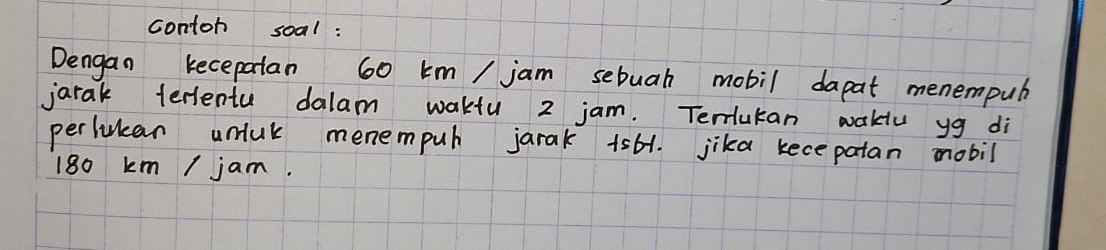 Contoh soal :
Dengan kecepatan 60 km / jam sebuah mobil dapat menempuh
jarak tertentu dalam waktu 2 jam. Tentukan waktu yg di
perlukan untuk menempuh jarak tsbt. jika kecepatan mobil
180 km / jam .